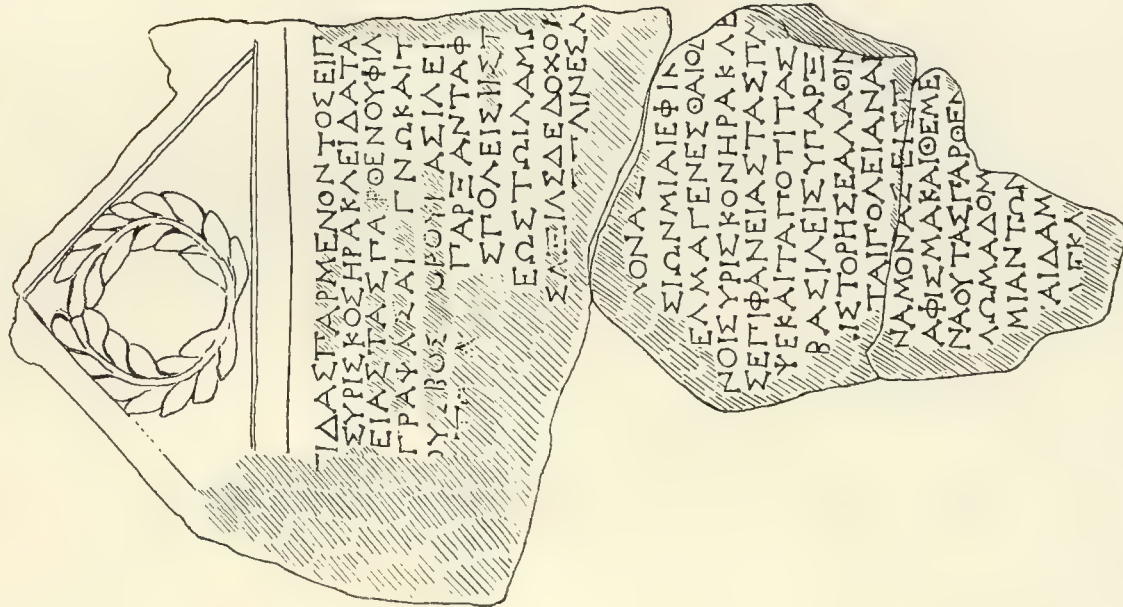 ΙΔΑΣΠΑΡΜΕΝΟΝΤΟΣΕΙΠ
ΣΥΡΙΣΚΟΣΗΡΑΚΛΕΙΔΑΤΑ
ΕΙΑΣΤΑΣΠΑ ΘΕΝΟΥΦΙΛ
ΓΡΑΨΑΣΑΙ ΓΝΩΚΑΙΤ
ΒΟΣ ΟΡΟΥ ΑΣΙΛΕΙ
ΠΑΡΞΑΝΤΑΦ
ΣΠΟΛΕΙΣΙΣΤ
ΕΩΣΤΩΙΛΑΜΩ
ΛΣΔΕΔΟΧΟΙ
ΛΙΝΕΣΛ
ΛΟΝΑΣ
ΣΙΩΝΜΙΑΙΕΦΙΝ
ΕΛΜΑΓΕΝΕΣΘΑΙΟΔ
ΝΟΙΣΥΡΙΣΚΟΝΗΡΑΚΛΕ
ΣΕΠΙΦΑΝΕΙΑΣΤΑΣΠΑ
ΨΕΚΑΙΤΑΠΟΤΙΤΑΣ
ΒΑΣΙΛΕΙΣΥΠΑΡΞ
ΙΣΤΟΡΗΣΕΑΛΑΘΙΝ
ΤΑΙΠΟΛΕΙΑΝΑΙ
ΝΑΜΟΝΑΣΕΙΣΤ
ΑΦΙΣΜΑΚΑΙΘΕΜΕ
ΝΑΟΥΤΑΣΠΑΡΘΕΝ
ΛΩΜΑΔΟΜ
ΜΙΑΝΤΩ
ΑΙΔΑΜ
ΛΕΚΛ